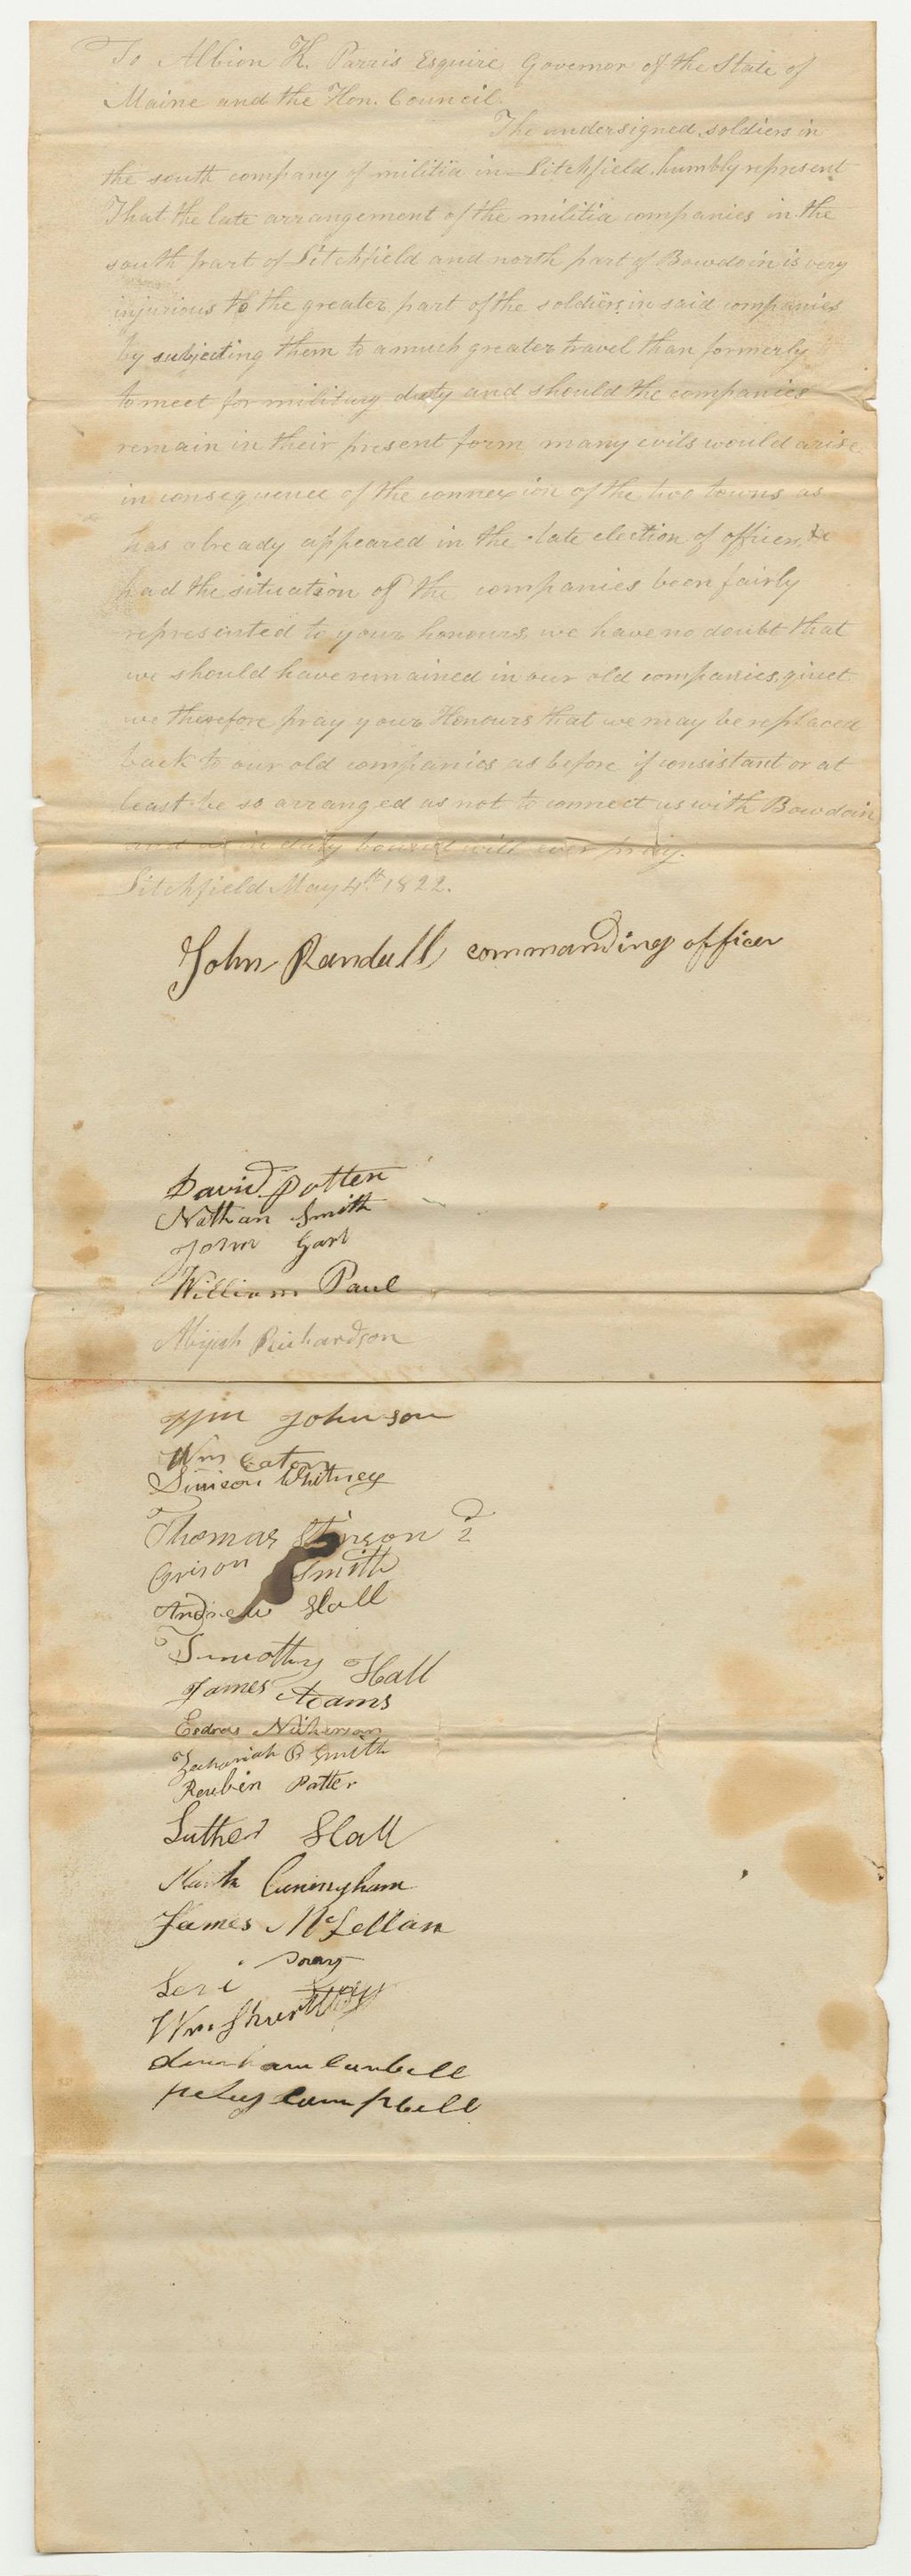 To Albion K. Parris Esquire Governor of the State of
Maine and the Hon. Council.
The undersigned, soldiers in
the south company of militia in Litchfield, humbly represent
That the late arrangement of the militia companies in the
south part of Litchfield and north part of Bowdoin is very
injurious to the greater part of the soldiers, in said companies
by subjecting them to a much greater travel than formerly
to meet for military duty and should the companies
remain in their present form many evils would arise
in consequence of the connexion of the two towns as
has already appeared in the late election of officers, &c
had the situation of the companies been fairly
represented to your honours, we have no doubt that
we should have remained in our old companies,
we therefore pray your Honours that we may be replaced
back to our old companies as before if consistant or at
least be so arranged as not to connect us with Bowdoin
and as in duty bound will ever pray.
Litchfield May 4th 1822.
John Randall commanding officer
David Potter
Nathan Smith
John
William Paul
Abijah Richardson
Wm Johnson
Wm Eaton
Simeon Whitney
Thomas Stinson 2d
Grison Smith
Andrew Hall
Timothy Hall
James Adams
Esdras Nickerson
Zachariah B Smith
Reuben Potter
Luther Hall
Cuningham
James McLellan
Levi
Wm
campbell